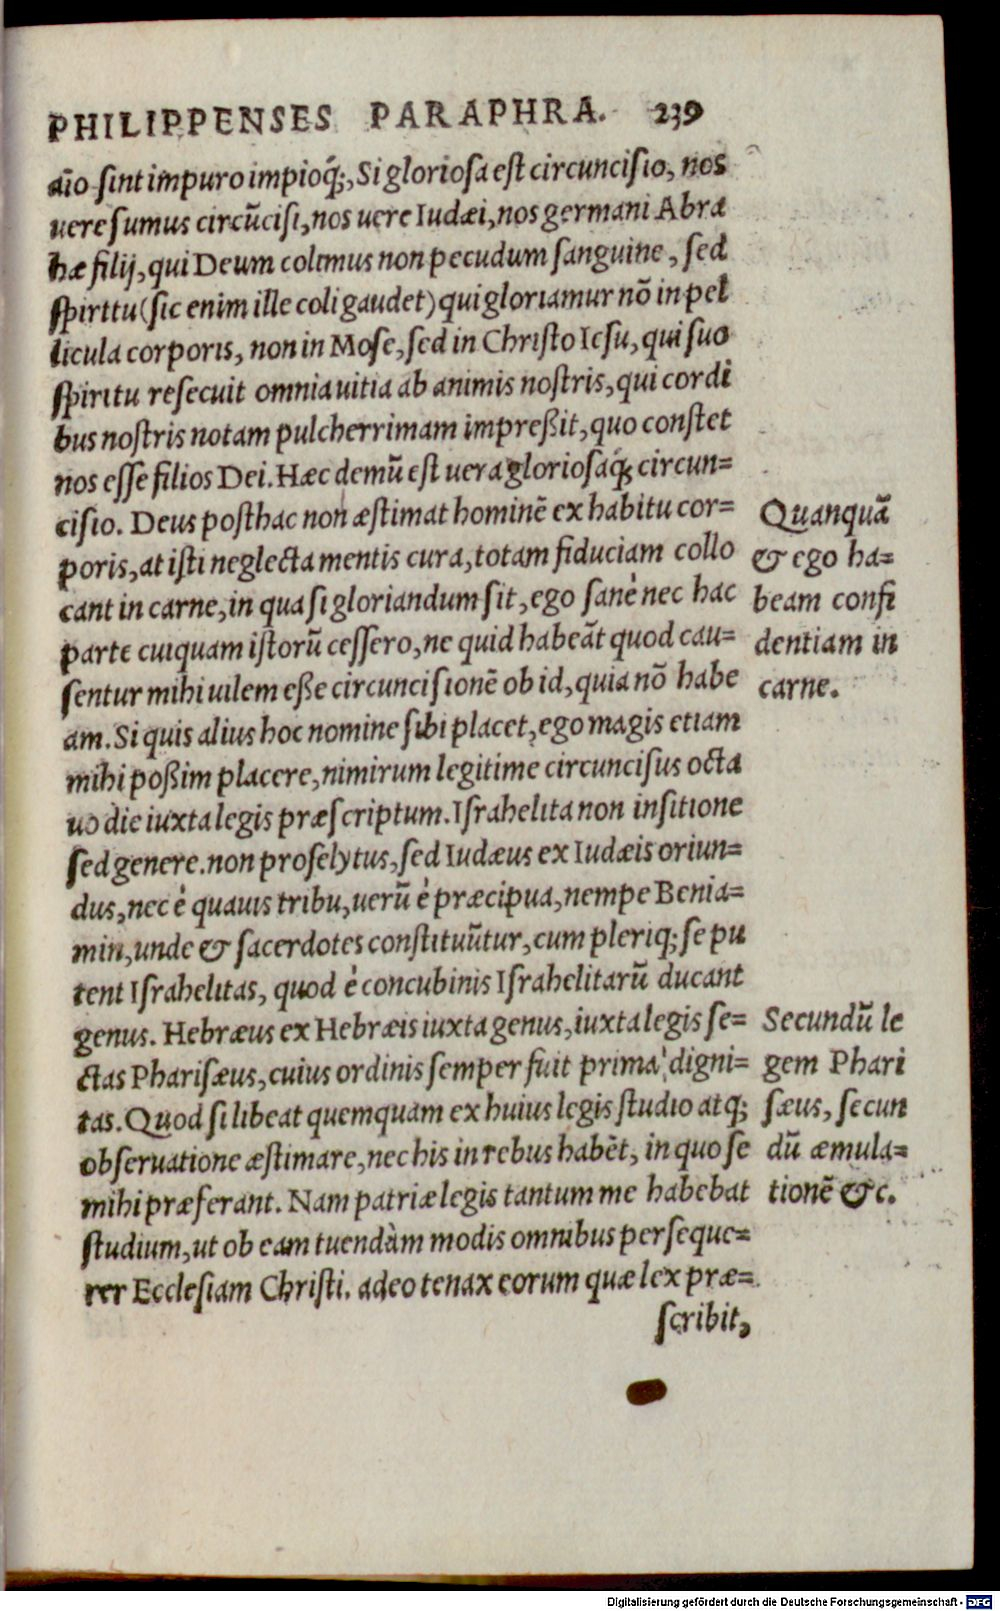 PHILIPPENSES PARAPHRA. 239
aīo sint impuro impioq́;, Si gloriosa est circuncisio, nos
uere sumus circūcisi, nos uere Iudæi, nos germani Abra
hæ filij, qui Deum colimus non pecudum sanguine, sed
spiritu (sic enim ille coli gaudet) qui gloriamur nō in pel
licula corporis, non in Mose, sed in Christo Iesu, qui suo
spiritu resecuit omnia uitia ab animis nostris, qui cordi
bus nostris notam pulcherrimam impreßit, quo constet
nos esse filios Dei. Hæc demū est uera gloriosaq́; circun=
cisio. Deus posthac non æstimat hominē ex habitu cor=
poris, at isti neglecta mentis cura, totam fiduciam collo
cant in carne, in qua si gloriandum sit, ego sanè nec hac
parte cuiquam istorū cessero, ne quid habeāt quod cau=
sentur mihi uilem eße circuncisionē ob id, quia nō habe
am. Si quis alius hoc nomine sibi placet, ego magis etiam
mihi poßim placere, nimirum legitime circuncisus octa
uo die iuxta legis præscriptum. Israhelita non insitione
sed genere. non proselytus, sed Iudæus ex Iudæis oriun=
dus, nec è quauis tribu, uerū è præcipua, nempe Benia=
min, unde & sacerdotes constituūtur, cum pleriq; se pu
tent Israhelitas, quod è concubinis Israhelitarū ducant
genus. Hebræus ex Hebræis iuxta genus, iuxta legis se=
ctas Pharisæus, cuius ordinis semper fuit prima digni=
tas. Quod si libeat quemquam ex huius legis studio atq;
obseruatione æstimare, nec his in rebus habēt, in quo se
mihi præferant. Nam patriæ legis tantum me habebat
studium, ut ob eam tuendàm modis omnibus perseque=
rer Ecclesiam Christi. adeo tenax eorum quæ lex præ=
scribit,
Quanquā
& ego ha=
beam confi
dentiam in
carne.
Secundū le
gem Phari
sæus, secun
dū æmula=
tionē &c.
Digitalisierung gefördert durch die Deutsche Forschungsgemeinschaft - DFG